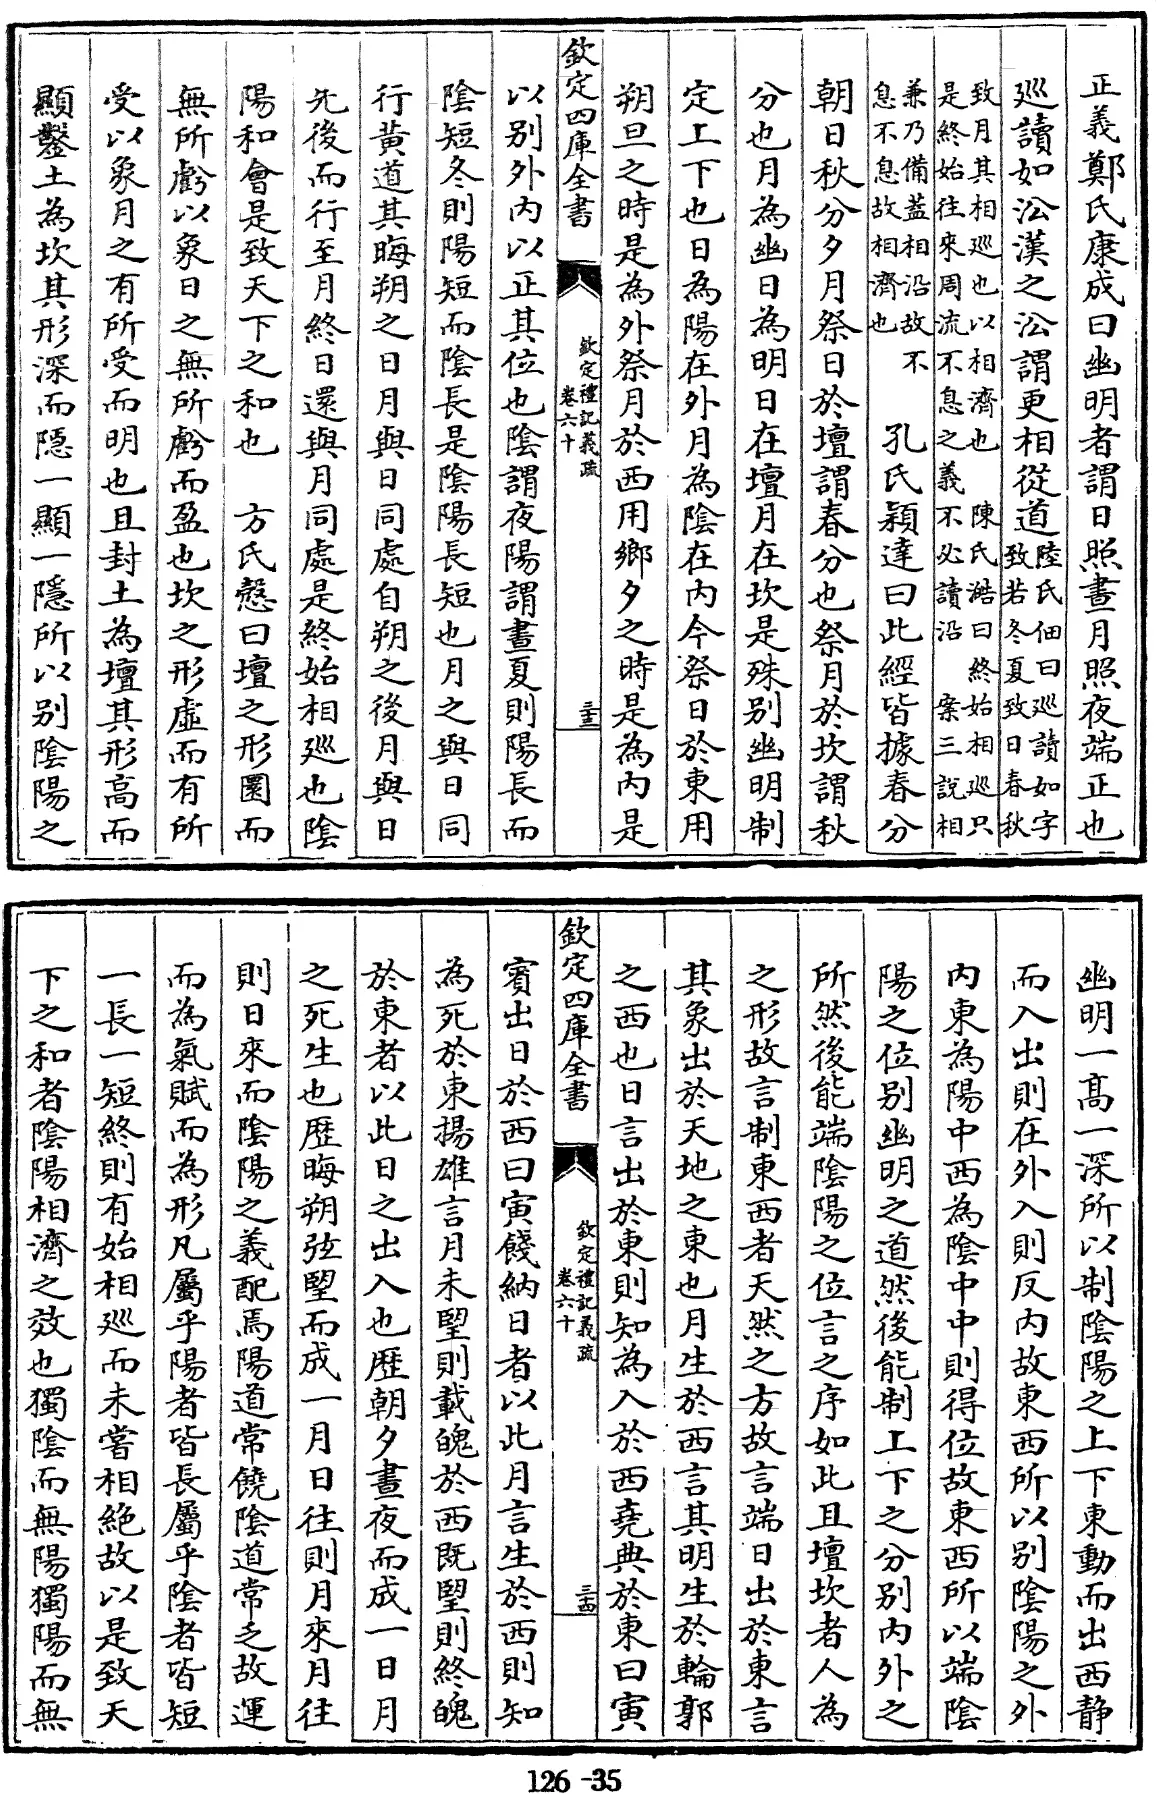 正義鄭氏康成曰幽明者謂日照晝月照夜端正也
巡讀如沿漢之沿謂更相從道陸氏佃曰巡讀如字
致若冬夏致日春秋
致月其相巡也以相濟也　陳氏澔曰終始相巡只
是終始往來周流不息之義不必讀沿　案三說相
兼乃備蓋相沿故不
息不息故相濟也
孔氏穎達曰此經皆據春分
朝日秋分夕月祭日於壇謂春分也祭月於坎謂秋
分也月為幽日為明日在壇月在坎是殊別幽明制
定上下也日為陽在外月為陰在內今祭日於東用
朔旦之時是為外祭月於西用鄉夕之時是為內是
欽定四庫全書
欽定禮記義疏
卷六十
三十三
以別外內以正其位也陰謂夜陽謂晝夏則陽長而
陰短冬則陽短而陰長是陰陽長短也月之與日同
行黃道其晦朔之日月與日同處自朔之後月與日
先後而行至月終日還與月同處是終始相巡也陰
陽和會是致天下之和也　方氏慤曰壇之形圜而
無所虧以象日之無所虧而盈也坎之形虛而有所
受以象月之有所受而明也且封土為壇其形高而
顯鑿土為坎其形深而隱一顯一隱所以別陰陽之
幽明一高一深所以制陰陽之上下東動而出西靜
而入出則在外入則反內故東西所以別陰陽之外
內東為陽中西為陰中中則得位故東西所以端陰
陽之位別幽明之道然後能制上下之分別內外之
所然後能端陰陽之位言之序如此且壇坎者人為
之形故言制東西者天然之方故言端日出於東言
其象出於天地之東也月生於西言其明生於輪郭
之西也日言出於東則知為入於西堯典於東曰寅
欽定四庫全書
欽定禮記義疏
卷六十
三十四
賓出日於西曰寅餞納日者以此月言生於西則知
為死於東揚雄言月未朢則載魄於西旣朢則終魄
於東者以此日之出入也歷朝夕晝夜而成一日月
之死生也歷晦朔弦朢而成一月日往則月來月往
則日來而陰陽之義配焉陽道常饒陰道常乏故運
而為氣賦而為形凡屬乎陽者皆長屬乎陰者皆短
一長一短終則有始相巡而未嘗相絕故以是致天
下之和者陰陽相濟之效也獨陰而無陽獨陽而無
126-35